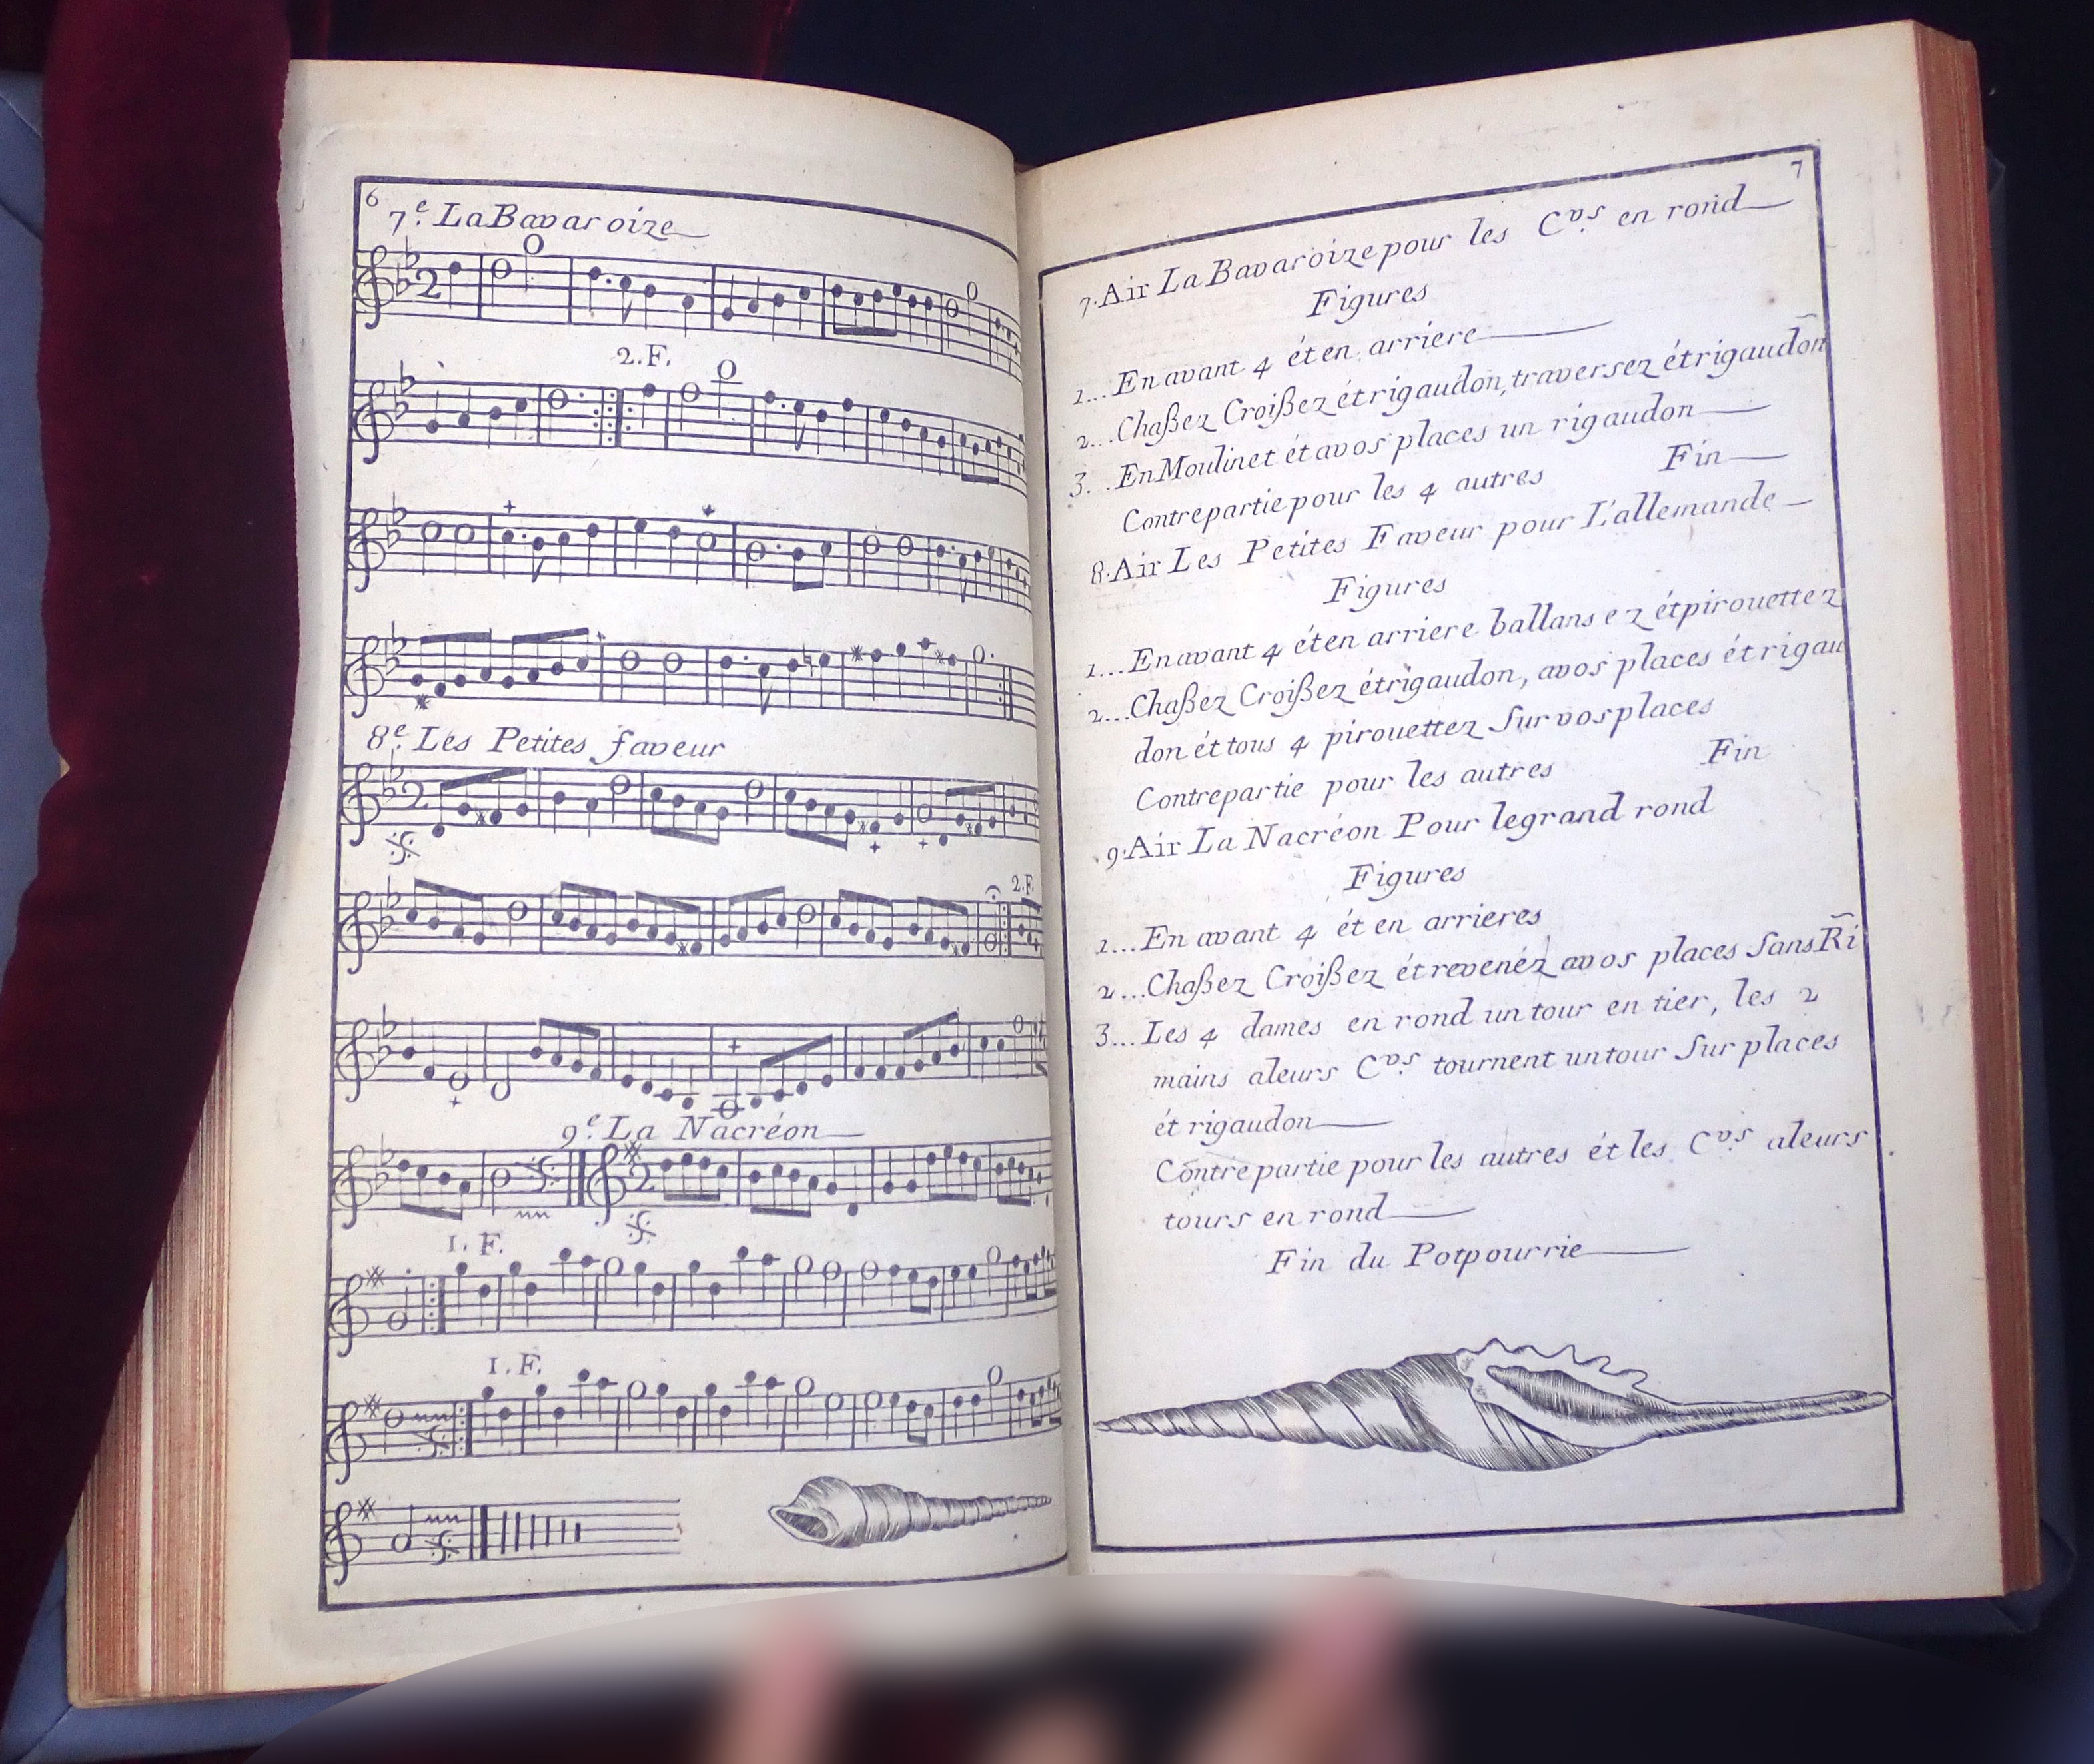 6
7.e La Bavaroize
2
2.F.
8.e Les Petites faveur
2
2.F.
9.e La Nacréon
2
1. F.
1. F.
7
7. Air La Bavaroize pour les C.vs en rond
Figures
1... En avant 4 ét en arriere
2... Chaßez Croißez ét rigaudon, traversez ét rigaudon
3. . En Moulinet ét avos places un rigaudon
Contrepartie pour les 4 autres Fin
8. Air Les Petites Faveur pour L'allemande
Figures
1... En avant 4 ét en arriere ballans ez ét pirouettez
2... Chaßez Croißez ét rigaudon, avos places ét rigau
don ét tous 4 pirouettez Sur vos places
Contrepartie pour les autres Fin
9. Air La Nacréon Pour le grand rond
Figures
1... En avant 4 ét en arrieres
2... Chaßez Croißez ét revenéz avos places Sans Ri
3... Les 4 dames en rond un tour en tier, les 2
mains aleurs C.vs tournent un tour Sur places
ét rigaudon
Contrepartie pour les autres ét les C.vs aleurs
tours en rond
Fin du Potpourrie